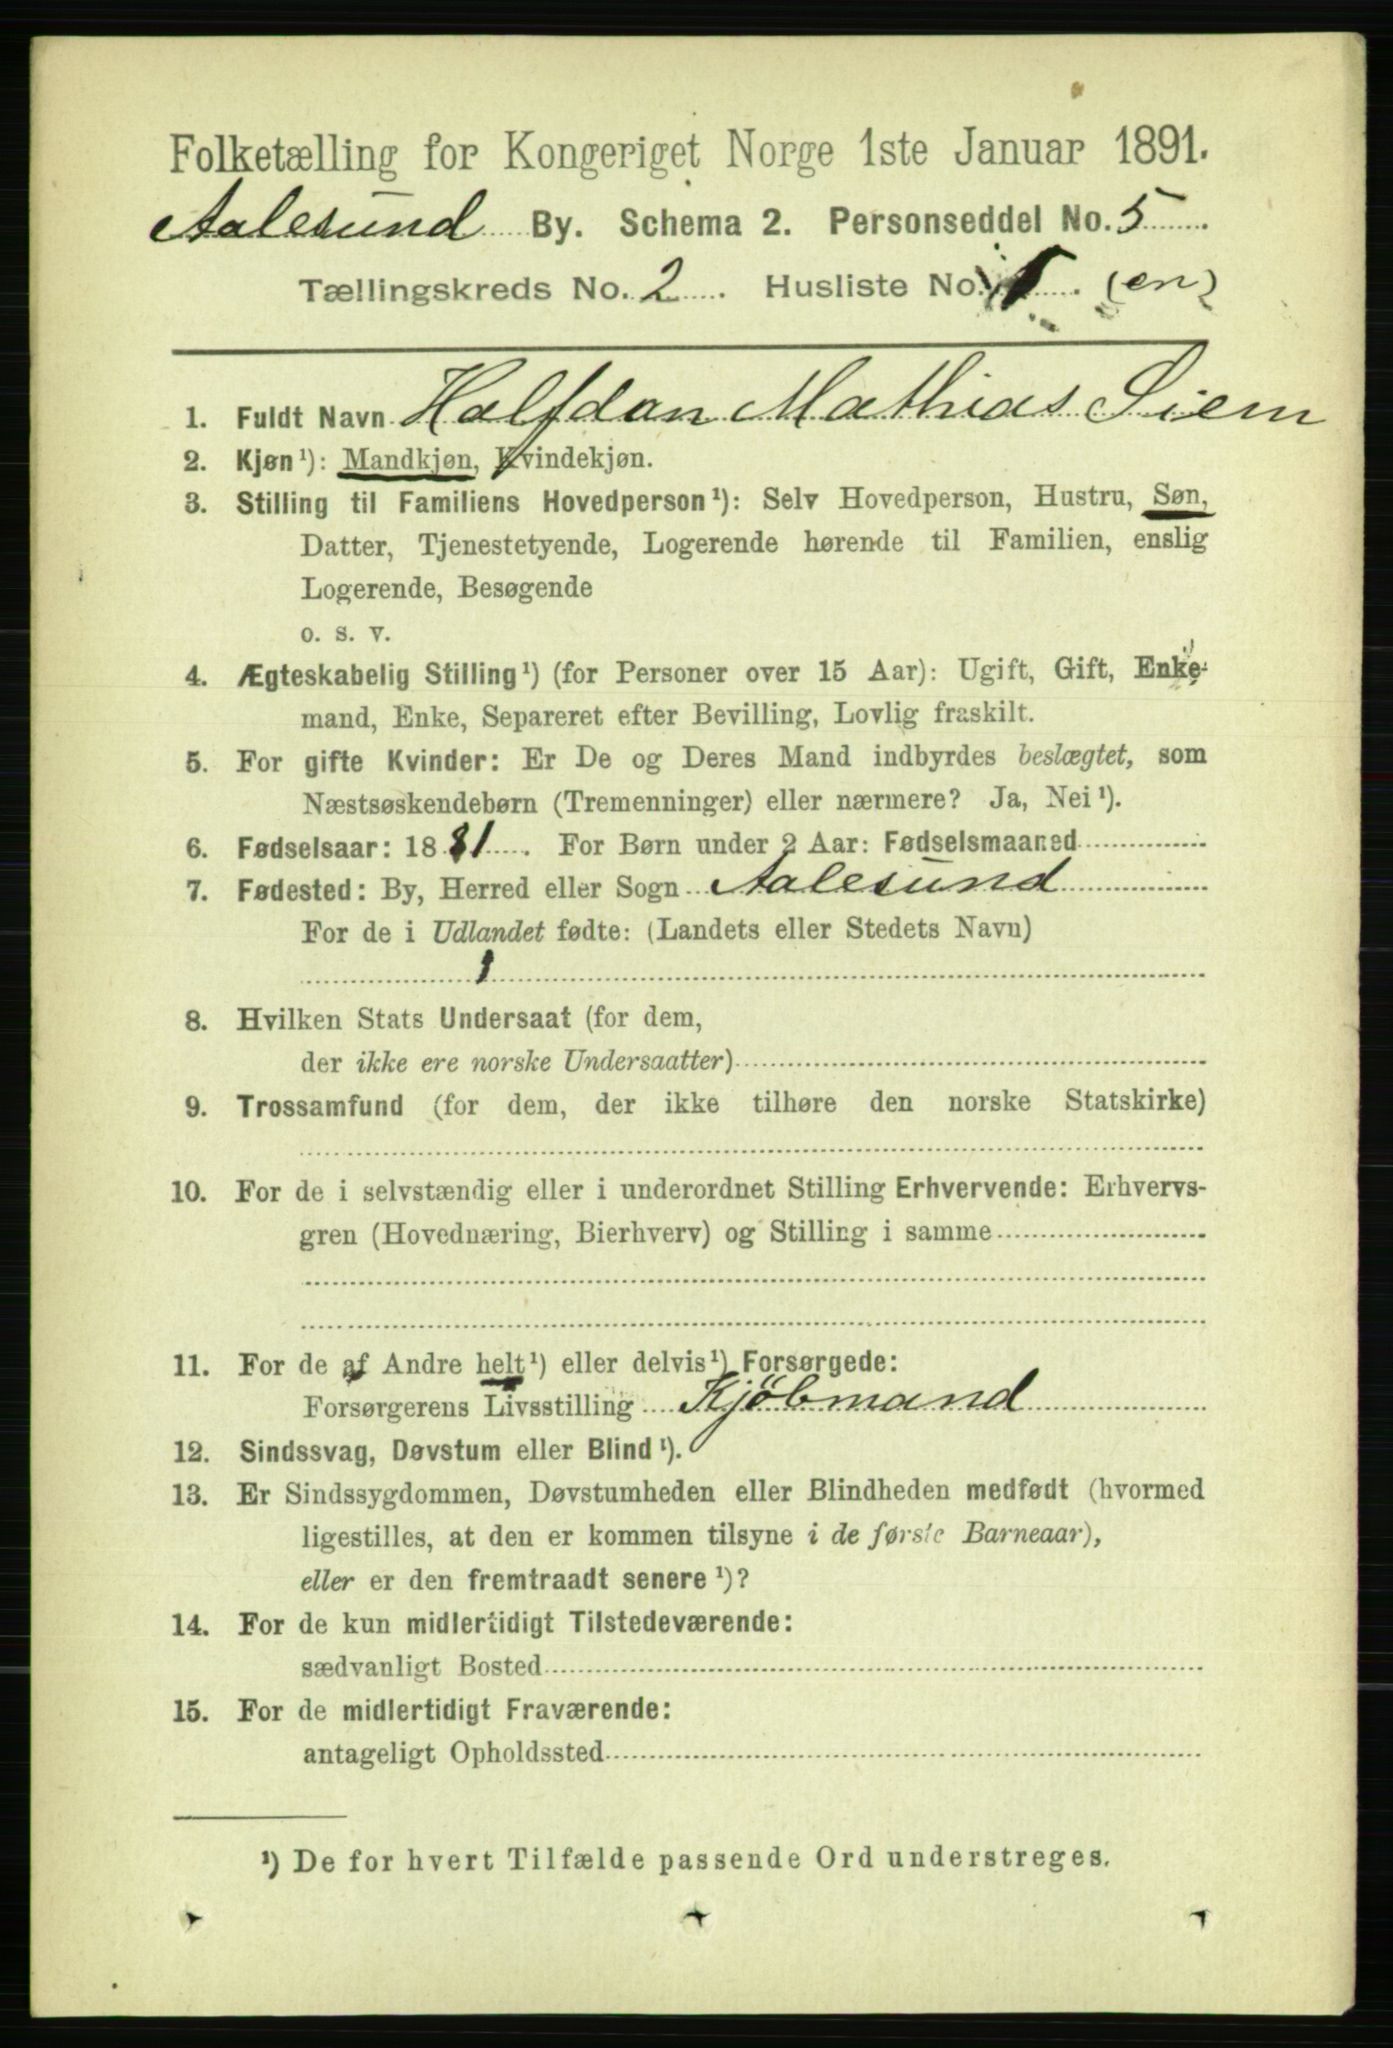 Folketælling for Kongeriget Norge 1ste Januar 1891.
Aalesund By. Schema 2. Personseddel No. 5
Tællingskreds No. 2. Husliste No. 1. (en)
1. Fuldt Navn Halfdan Mathias Siem
2. Kjøn¹): Mandkjøn, Kvindekjøn.
3. Stilling til Familiens Hovedperson¹): Selv Hovedperson, Hustru, Søn,
Datter, Tjenestetyende, Logerende hørende til Familien, enslig
Logerende, Besøgende
o. s. v.
4. Ægteskabelig Stilling¹) (for Personer over 15 Aar): Ugift, Gift, Enke-
mand, Enke, Separeret efter Bevilling, Lovlig fraskilt.
5. For gifte Kvinder: Er De og Deres Mand indbyrdes beslægtet, som
Næstsøskendebørn (Tremenninger) eller nærmere? Ja, Nei¹).
6. Fødselsaar: 1881. For Børn under 2 Aar: Fødselsmaaned
7. Fødested: By, Herred eller Sogn Aalesund
For de i Udlandet fødte: (Landets eller Stedets Navn)
8. Hvilken Stats Undersaat (for dem,
der ikke ere norske Undersaatter)
9. Trossamfund (for dem, der ikke tilhøre den norske Statskirke)
10. For de i selvstændig eller i underordnet Stilling Erhvervende: Erhvervs-
gren (Hovednæring, Bierhverv) og Stilling i samme
11. For de af Andre helt¹) eller delvis¹) Forsørgede:
Forsørgerens Livsstilling Kjöbmand
12. Sindssvag, Døvstum eller Blind¹).
13. Er Sindssygdommen, Døvstumheden eller Blindheden medfødt (hvormed
ligestilles, at den er kommen tilsyne i de første Barneaar),
eller er den fremtraadt senere¹)?
14. For de kun midlertidigt Tilstedeværende:
sædvanligt Bosted
15. For de midlertidigt Fraværende:
antageligt Opholdssted
¹) De for hvert Tilfælde passende Ord understreges.